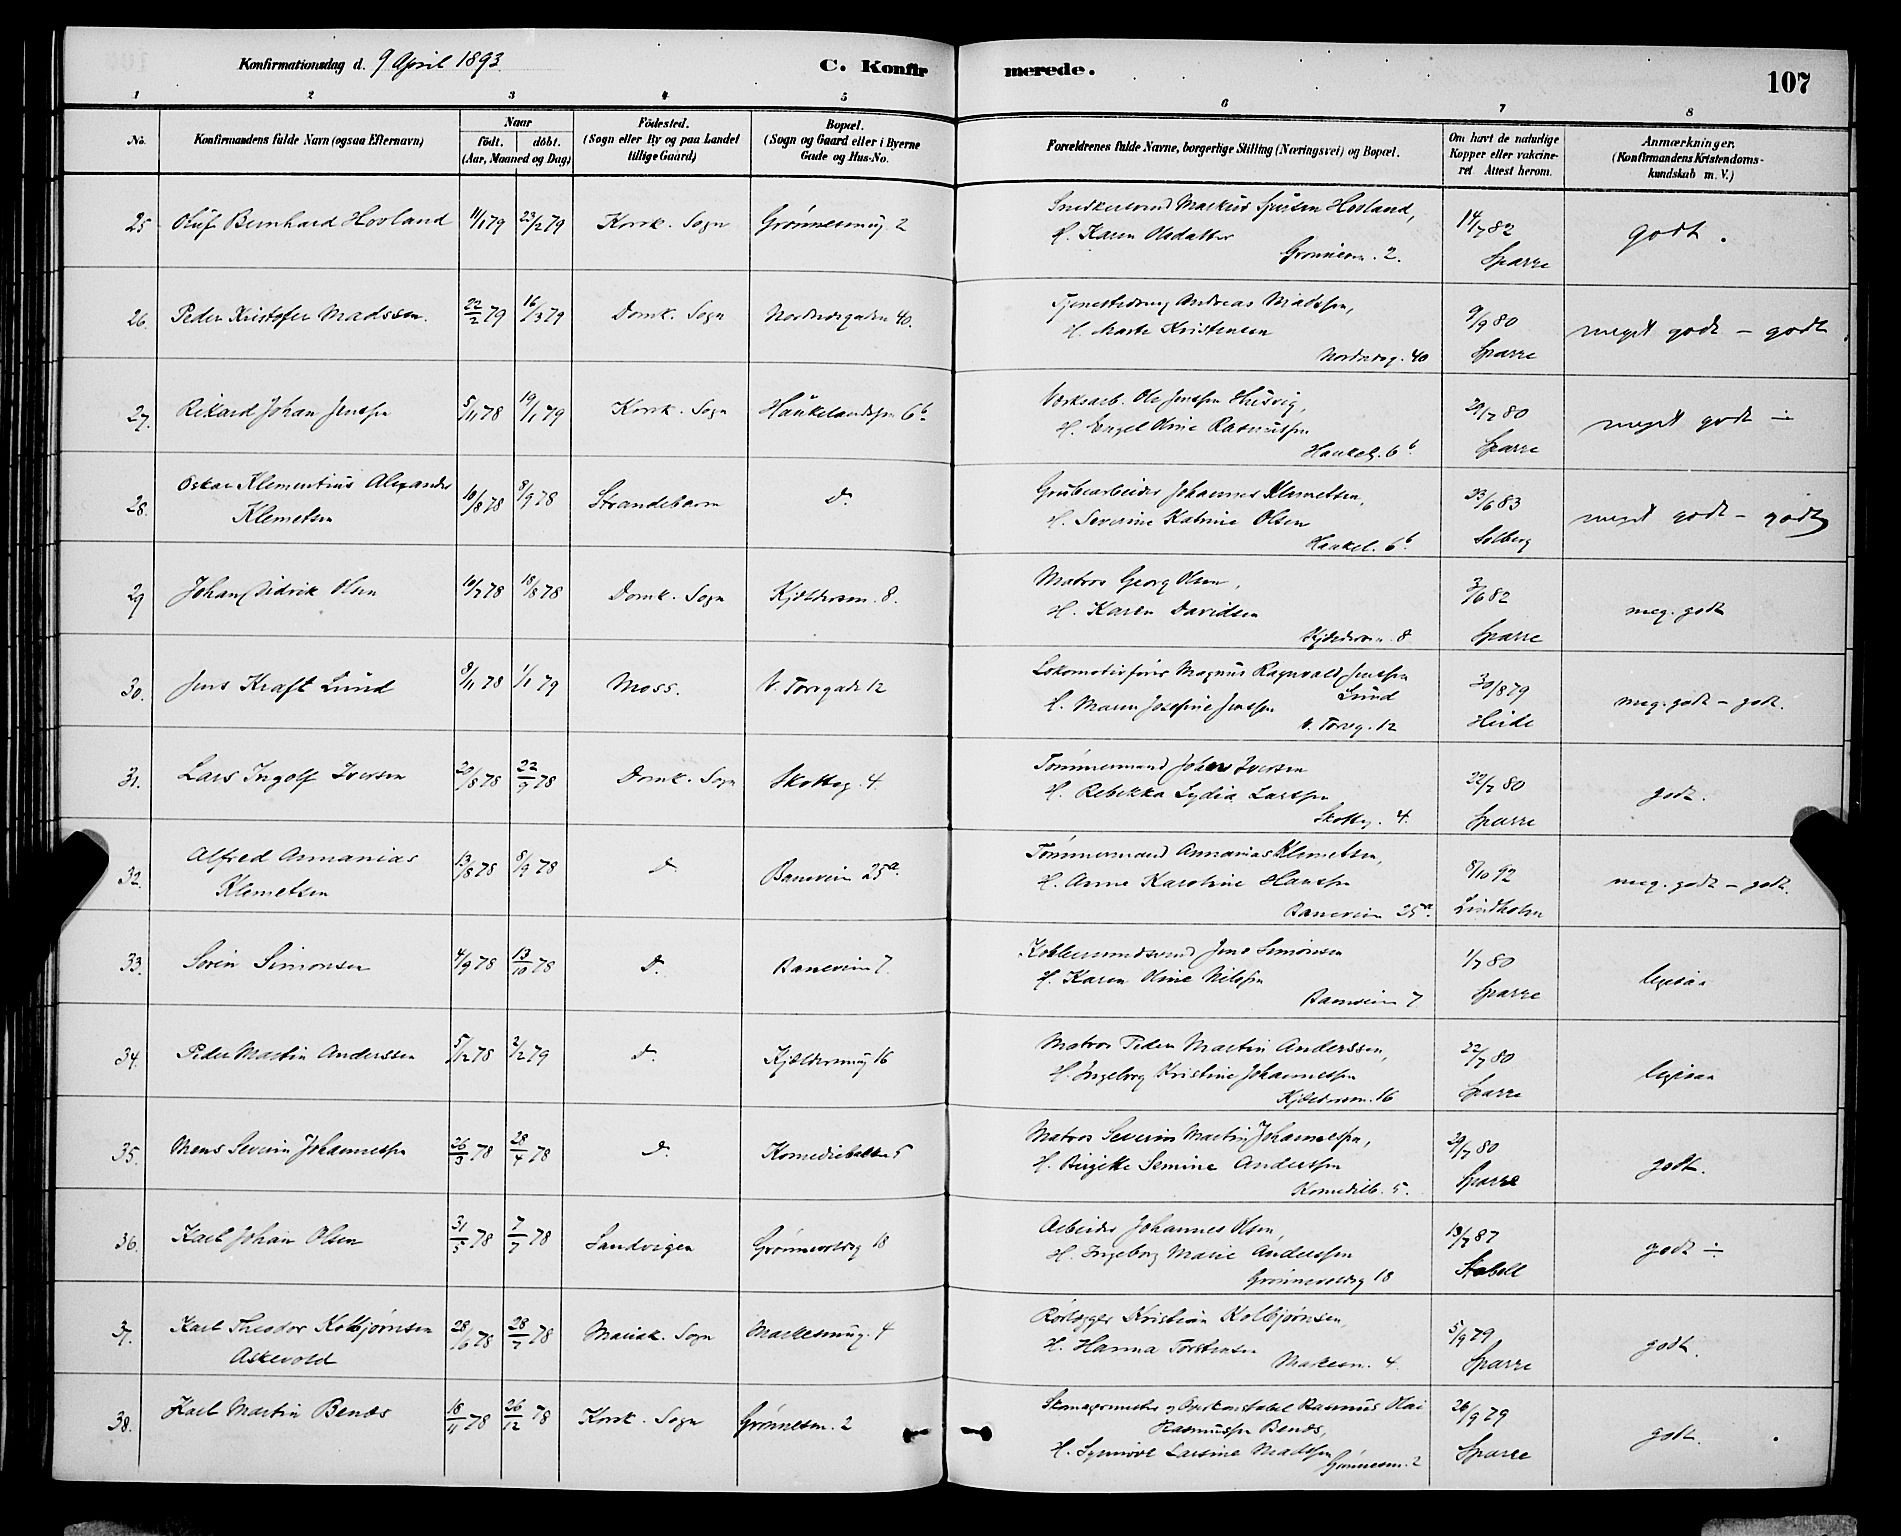 Konfirmationsdag d. 9 April 1893. C. Konfirmerede. 107
1 2 3 4 5 6 7 8
No. Konfirmandens fulde Navn (ogsaa Efternavn) Naar født. døbt. (Aar, Maaned og Dag) Fødested. (Sogn eller By og paa Landet tillige Gaard) Bopæl. (Sogn og Gaard eller i Byerne Gade og Hus-No. Forældrenes fulde Navne, borgerlige Stilling (Næringsvei) og Bopæl. Om havt de naturlige Kopper eller vakcineret Attest herom. Anmærkninger. (Konfirmandens Kristendomskundskab m. V.)
25 Oluf Bernhard Hovland 11/1 79 23/2 79 Korsk. Sogn Grønnesmug 2
Markus Hovland,
H. Karen Olsdatter
Grønnesm. 2.
14/7 82
Sparre
godt.
26. Peder Kristofer Madssen. 22/2 79 16/3 79 Domk. Sogn Nordnesgaden 40.
Tjenestedreng Andreas Madssen,
H. Marte Kristensen
Nordnesg. 40
9/9 80
Sparre
meget godt - godt
27. Rikard Johan Jenssen 5/11 78 19/1 79 Korsk. Sogn Haukelandsvn 6b
Værksarb. Ole Jenssen Husvig,
H. Engel Oline Rasmussen
Haukel. 6b.
29/7 80
Sparre
meget godt ÷
28. Oskar Klementius Alexander
Klemetsen
10/8 78 8/9 78 Strandebarm Do
Grubearbeider Johannes Klemetsen,
H. Severine Katrine Olsen
Haukel. 6b.
23/6 83
Solberg
meget godt - godt
29 Johan Didrik Olsen 10/7 78 18/8 78 Domk. Sogn Kjeldersm. 8.
Matros Georg Olsen,
H. Karen Davidsen
Kjeldersm. 8
3/6 82
Sparre
meg. godt
30. Jens Kraft Lund 8/11 78 1/1 79 Moss. V. Torvgade 12
Lokomotivfører Magnus Ragnvald Jenssen
Lund
H. Maren Josefine Jenssen
V. Torvg. 12
30/8 79
Heide
meg. godt - godt.
31. Lars Ingolf Iversen 20/8 78 22/9 78 Domk. Sogn Skotteg. 4.
Tømmermand Johan Iversen
H. Rebekka Lydia Larssen
Skotteg. 4.
22/7 80
Sparre
godt.
32. Alfred Annanias
Klemetsen
13/8 78 8/9 78 Do Baneveien 25a.
Tømmermand Annanias Klemetsen,
H. Anna Karoline Hanssen
Baneveien 25a.
8/10 92
Lindholm
meg. godt - godt.
33. Sørin Simonsen 4/9 78 13/10 78 Do. Baneveien 7.
Jens Simonsen
H. Karen Oline Nilssen
Baneveien 7
1/7 80
Sparre
ligesaa
34. Peder Martin Anderssen 5/12 78 2/2 79 Do. Kjeldersmug 16
Matros Peder Martin Anderssen,
H. Ingeborg Kristine Johannessen
Kjeldersm. 16
22/7 80
Sparre
ligesaa
35. Mons Severin Johannessen 26/3 78 28/4 78 Do. Komediebakken 5
Matros Severin Martin Johannessen,
H. Birgitte Semine Anderssen
Komedieb. 5.
29/7 80
Sparre
godt.
36. Karl Johan Olsen 31/5 78 7/7 78 Sandvigen Grønnevoldsg 18
Arbeider Johannes Olsen,
H. Ingeborg Marie Anderssen
Grønnevoldsg 18
13/7 87
Stabell
godt ÷
37. Karl Theodor Kolbjørnsen
Askevold
28/6 78 28/7 78 Mariak. Sogn Markesmug. 4
Rørlægger Kristian Kolbjørnsen,
H. Hanna Torstensen
Markesm. 4.
5/9 79
Sparre
godt.
38. Karl Martin Bends 18/11 78 26/12 78 Korsk. Sogn Grønnesm. 2
Skomagermester og Overkonstabel Rasmus Olai
Rasmussen Bends,
H. Synnøve Larsine Madssen
Grønnesm. 2
26/9 79
Sparre
godt.